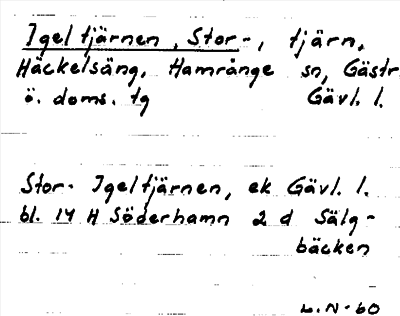 Igeltjärnen, Stor-, tjärn,
Häckelsäng, Hamrånge sn, Gästr.
ö. doms. tg Gävl. l.
Stor-Igeltjärnen, ek Gävl. l.
bl. 14 H Söderhamn 2 d Sälg-
bäcken
L.N-60